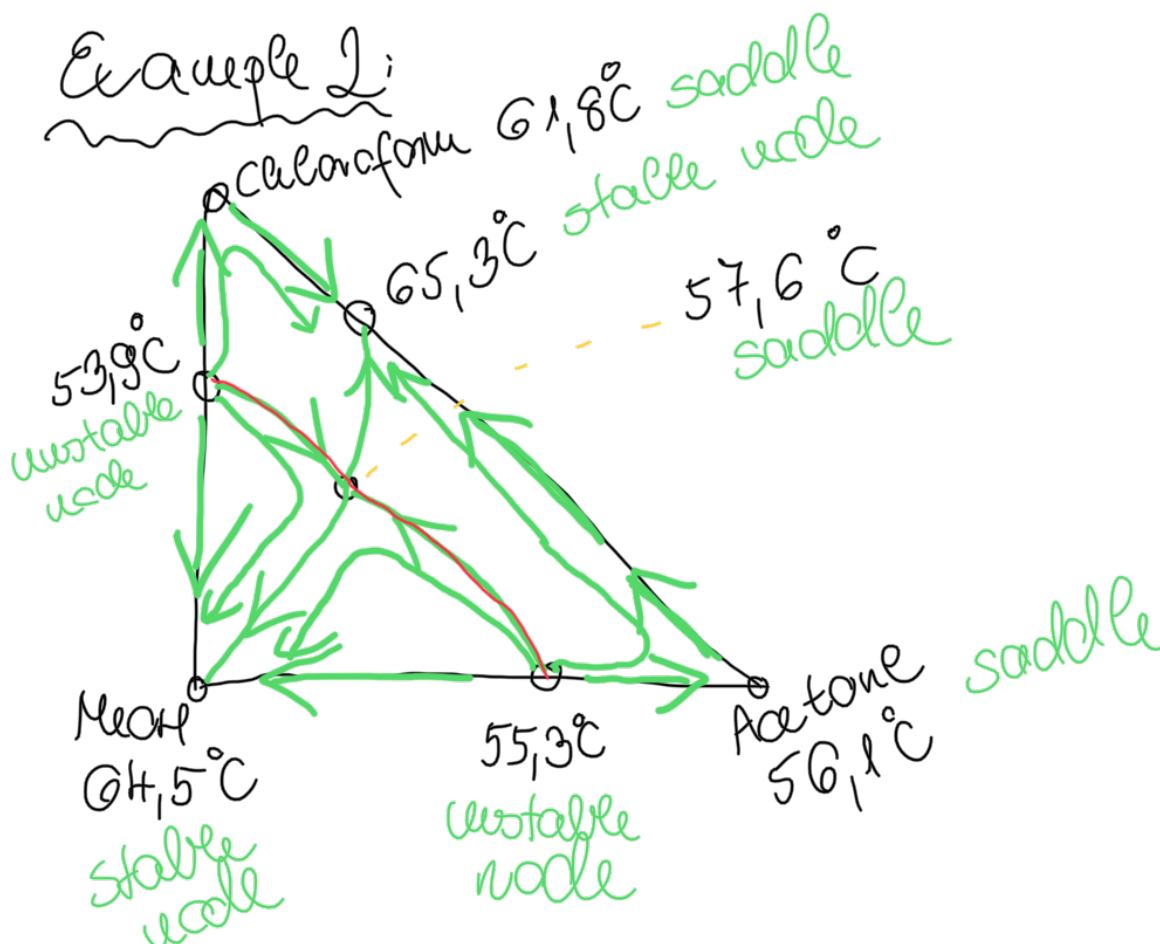 Example 2:
Chloroform 61,8°C saddle
65,3°C stable node
57,6 °C
saddle
53,9°C
unstable
node
MeOH
64,5°C
stable
node
55,3°C
unstable
node
Acetone
56,1°C
saddle